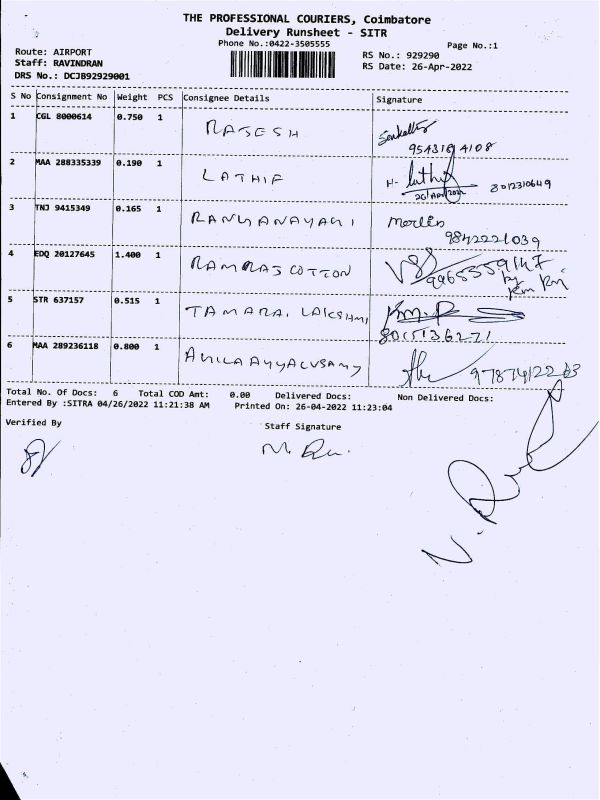 THE PROFESSIONAL COURIERS, Coimbatore
Delivery Runsheet - SITR
Phone No.:0422-3505555
Page No.:1
Route: AIRPORT
RS No.: 929290
Staff: RAVINDRAN
RS Date: 26-Apr-2022
DRS No.: DCJB92929001
S No Consignment No Weight PCS Consignee Details Signature
1 CGL 8000614 0.750 1 RAJESH
2 MAA 288335339 0.190 1 LATHIF
26 APR 2022 8012310649
3 TNJ 9415349 0.165 1 RANGANAYAGI Merlin
9842221039
4 EDQ 20127645 1.400 1 RAMRAJ COTTON
5 STR 637157 0.515 1 TAMARAI LAKSHMI
8015136271
6 MAA 289236118 0.800 1
Total No. Of Docs: 6 Total COD Amt: 0.00 Delivered Docs: Non Delivered Docs:
Entered By :SITRA 04/26/2022 11:21:38 AM Printed On: 26-04-2022 11:23:04
Verified By Staff Signature